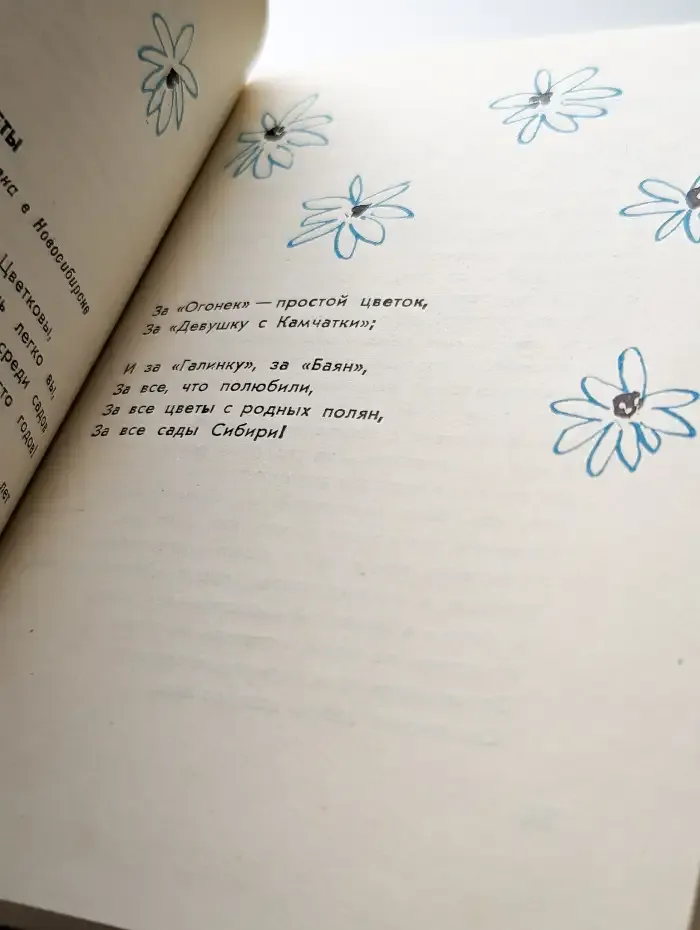 ты
в Новосибирске
Цветковы,
легко вы,
среди садов
годов!
лет
За «Огонек» — простой цветок,
За «Девушку с Камчатки»;
И за «Галинку», за «Баян»,
За все, что полюбили,
За все цветы с родных полян,
За все сады Сибири!